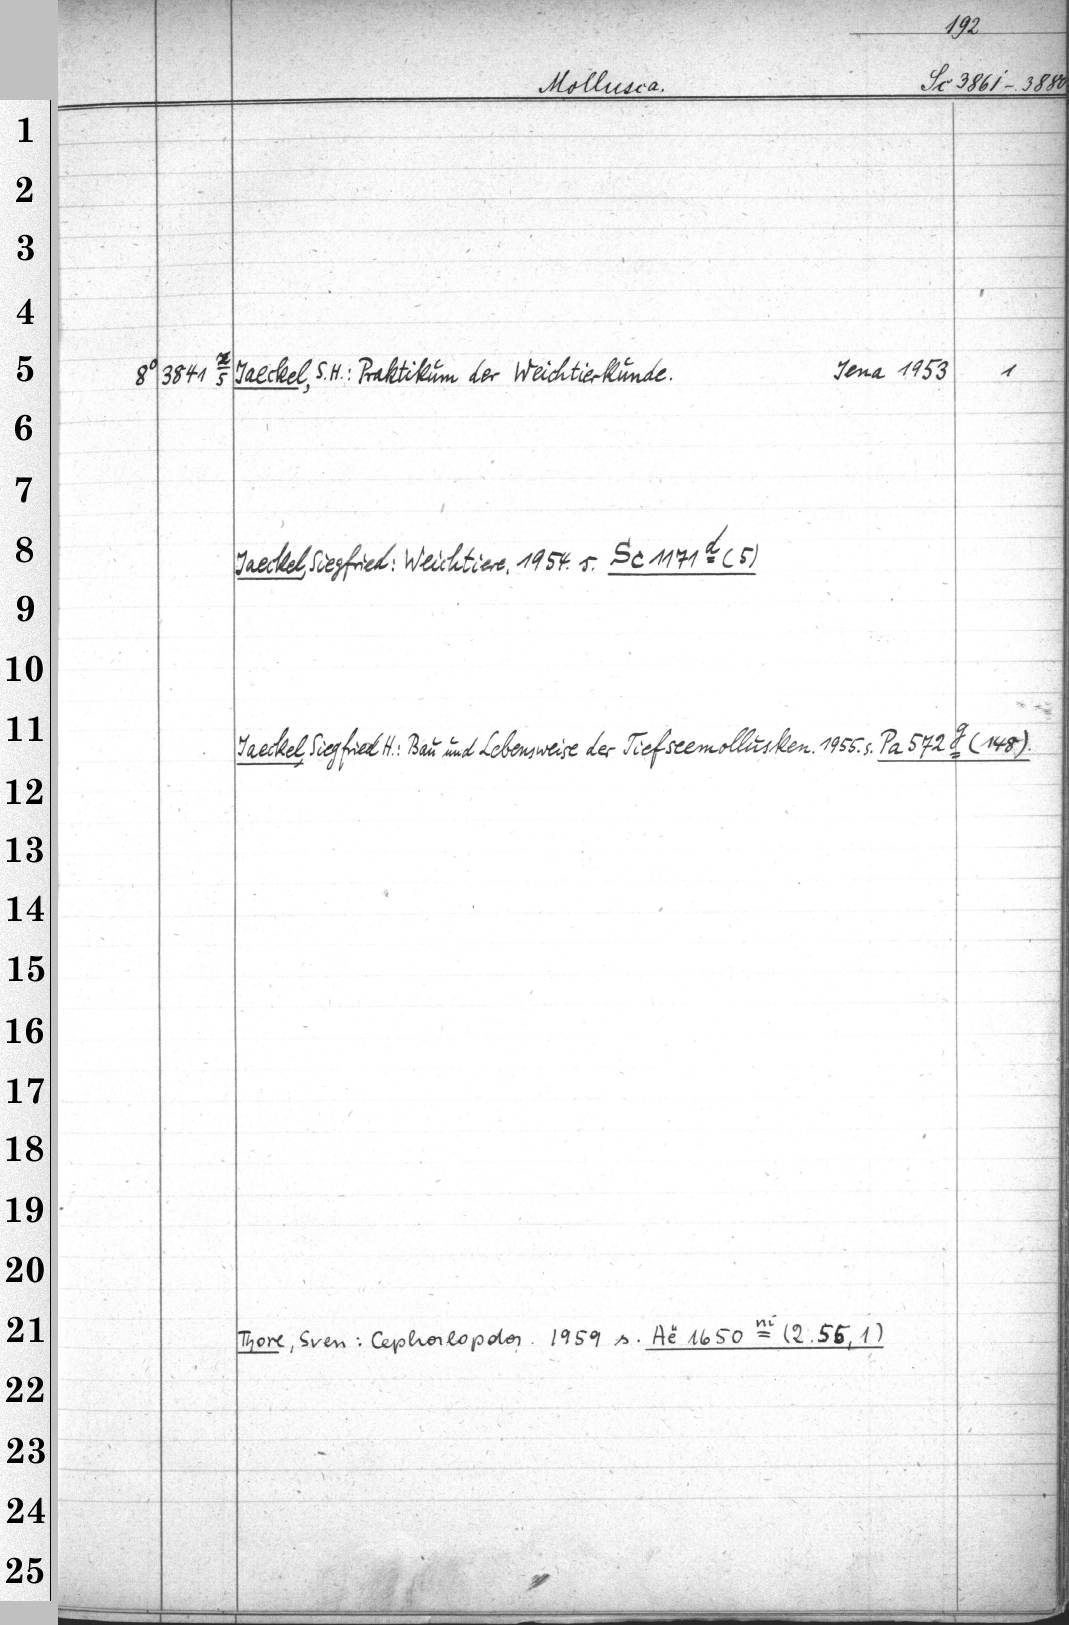 192
Mollusca. Sc 3861-3880
1
2
3
4
5 8° 3841 5 Jaeckel, S.H.: Praktikum der Weichtierkunde. Jena 1953 1
6
7
8 Jaeckel, Siegfried: Weichtiere. 1954. s. Sc 1171 d (5)
9
10
11 Jaeckel, Siegfried H.: Bau und Lebensweise der Tiefseemollusken. 1955. s. Pa 572 g (148).
12
13
14
15
16
17
18
19
20
21 Thore, Sven: Cephalopoda. 1959 s. Aë 1650 ni (2.55,1)
22
23
24
25